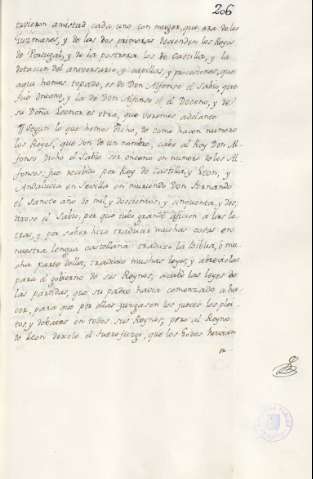 206
tuvieron amistad cada uno con muger, que era de los
Guzmanes, y de las dos primeras descienden los Reyes
de Portugal, y de la postrera los de Castilla, y la
dotacion del aniversario, y capillas, y possesiones, que
aqui hemos topado, es de Don Alfonso el Sabio, que
fuè Decimo, y la de Don Alfonso es el Doceno, y de
su Doña Leonor es otra, que veremos adelante.
Segun lo que hemos dicho, de como hacen numero
los Reyes, que son de un nombre, cabe al Rey Don Al-
fonso dicho el Sabio ser onceno en numero de los Al-
fonsos: fuè recibido por Rey de Castilla, y Leon, y
Andalucia en Sevilla en muriendo Don Fernando
el Sancto año de mil, y doscientos, y cinquenta, y dos,
dixose el Sabio, por que tubo grande aficion a las le-
tras, y por saber hizo traducir muchas cosas en
nuestra lengua castellana: traducir la Biblia, ò mu-
cha parte della, traduxo muchas leyes, y abreviolas
para el gobierno de sus Reynos, acabó las leyes de
las partidas, que su padre havia comenzado a ha-
cer, para que por ellas juzgasen los jueces los plei-
tos, y debates en todos sus Reynos, pero al Reyno
de Leon dexole el fuero juzgo, que los Godos